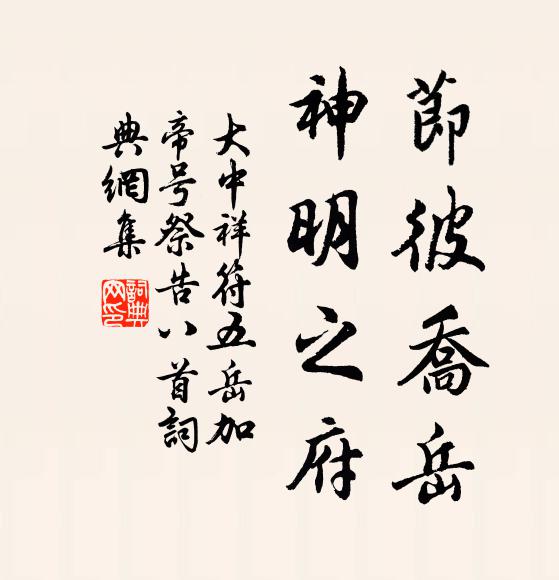 節彼喬岳
神明之府
大中祥符五岳加
帝号祭告八首詞
典網集
詞典
网印